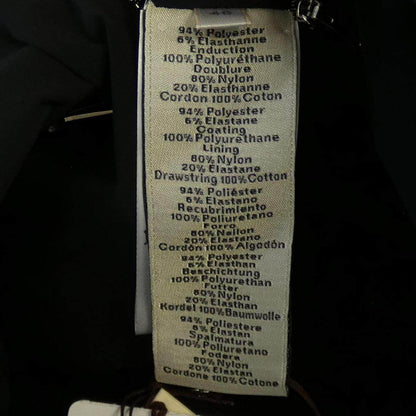 94% Polyester
6% Elasthanne
Enduction
100% Polyuréthane
Doublure
80% Nylon
20% Elasthanne
Cordon 100% Coton
94% Polyester
6% Elastane
Coating
100% Polyurethane
Lining
80% Nylon
20% Elastane
Drawstring 100% Cotton
94% Poliéster
6% Elastano
Recubrimiento
100% Poliuretano
Forro
80% Nailon
20% Elastano
Cordón 100% Algodón
94% Polyester
6% Elasthan
Beschichtung
100% Polyurethan
Futter
80% Nylon
20% Elasthan
Kordel 100% Baumwolle
94% Poliestere
6% Elastan
Spalmatura
100% Poliuretano
Fodera
80% Nylon
20% Elastan
Cordone 100% Cotone